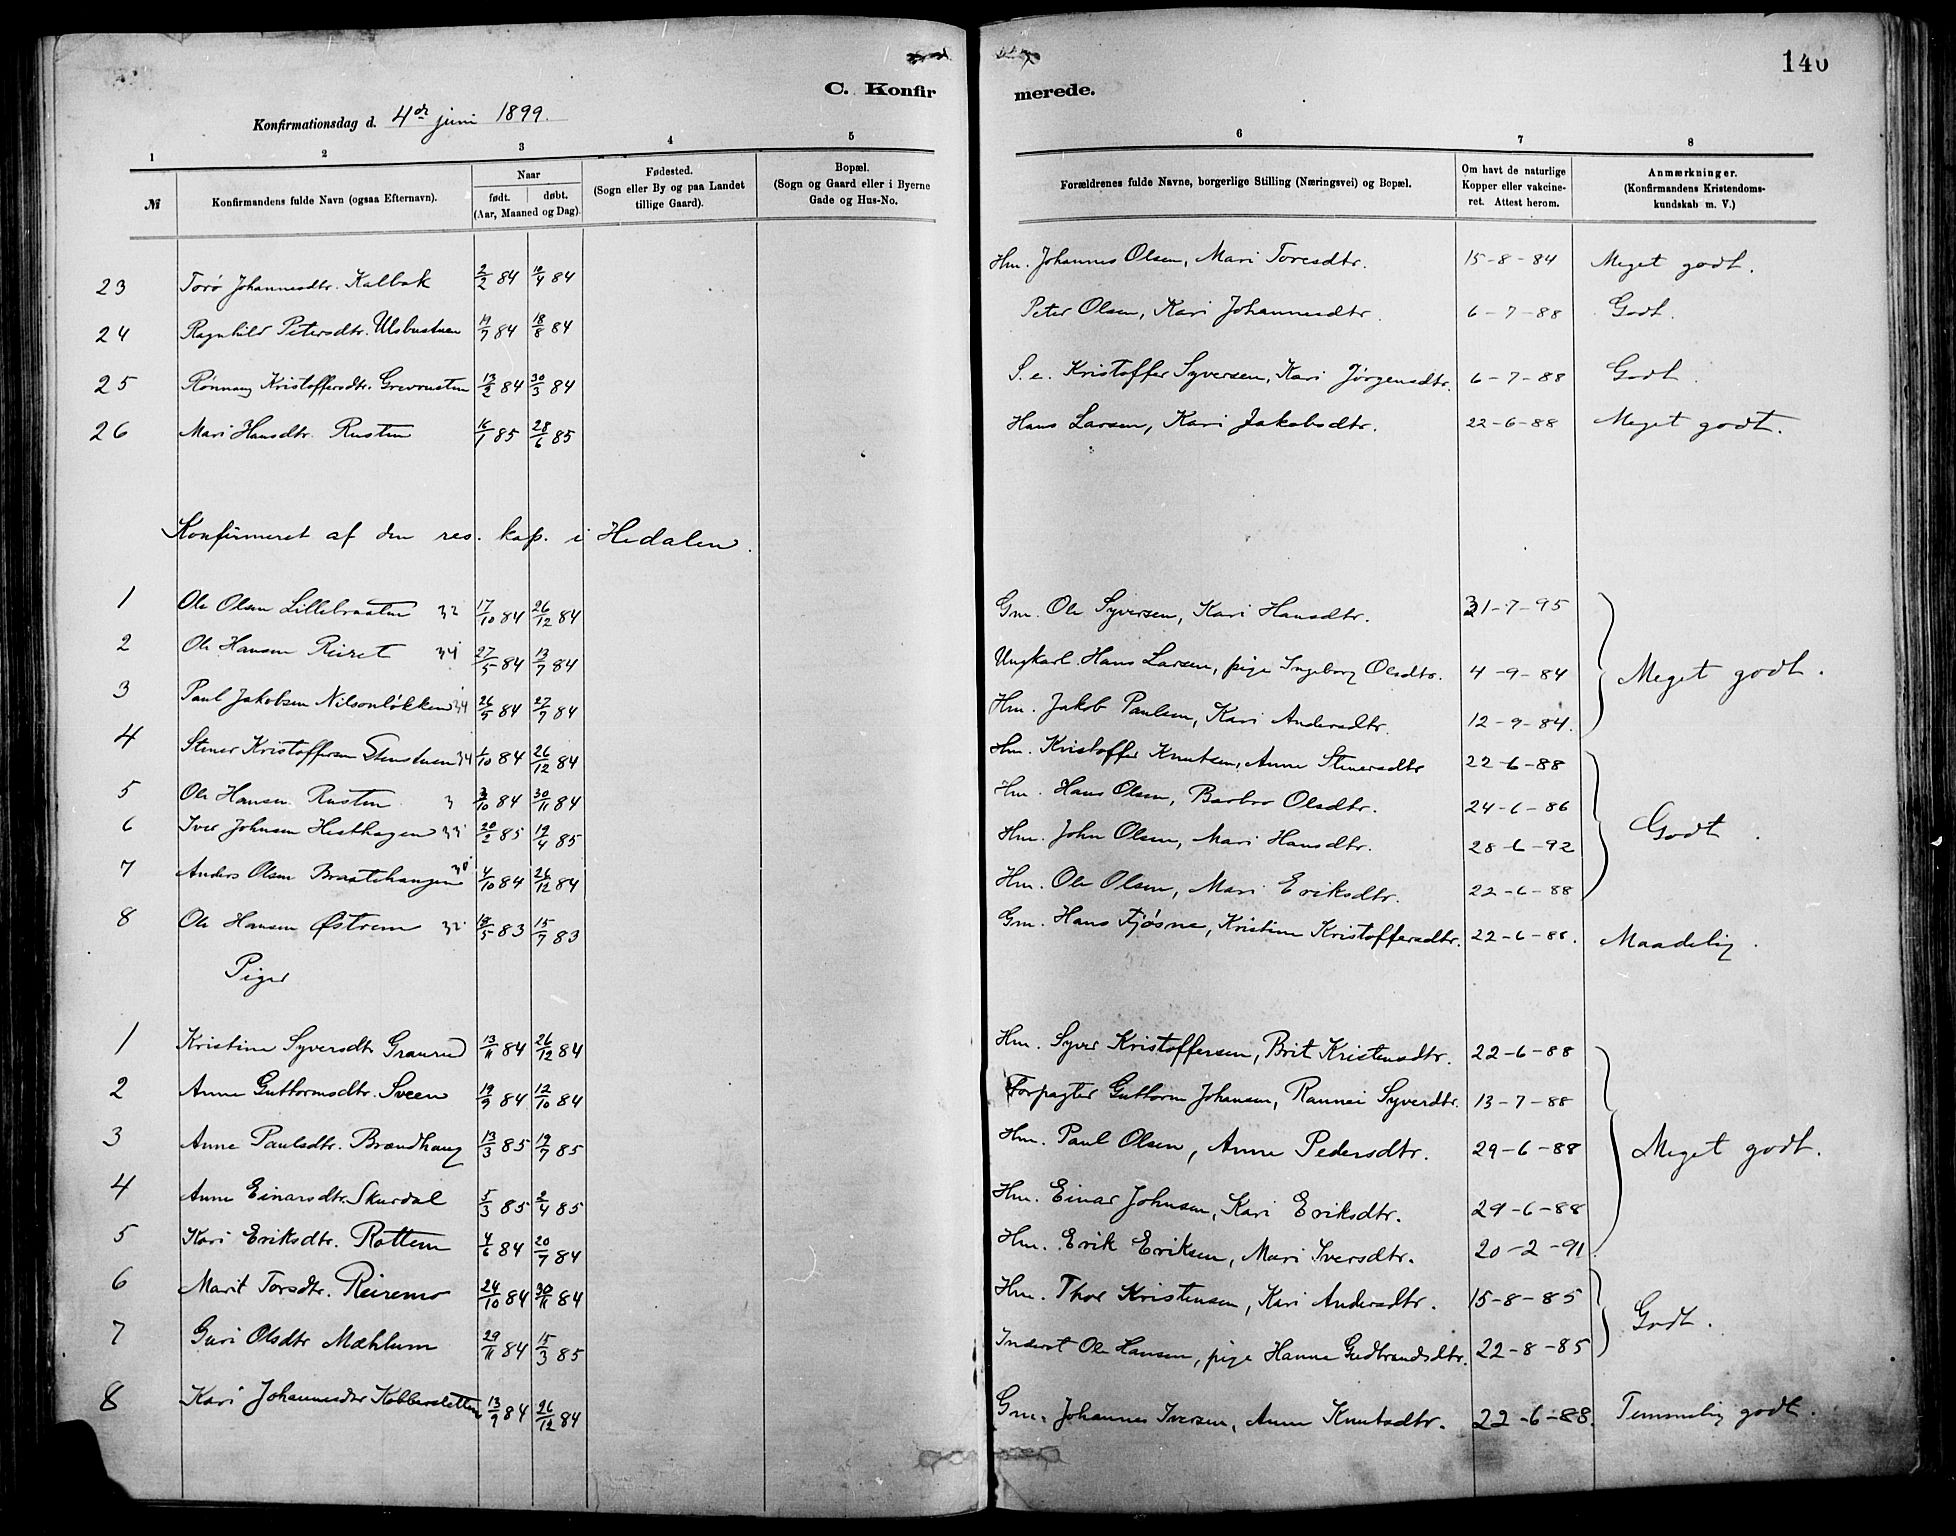 140
C. Konfirmerede.
Konfirmationsdag d. 4de juni 1899.
1 2 3 4 5 6 7 8
№ Konfirmandens fulde Navn (ogsaa Efternavn). Naar født. døbt. (Aar, Maaned og Dag). Fødested. (Sogn eller By og paa Landet tillige Gaard). Bopæl. (Sogn og Gaard eller i Byerne Gade og Hus-No. Forældrenes fulde Navne, borgerlige Stilling (Næringsvei) og Bopæl. Om havt de naturlige Kopper eller vakcineret. Attest herom. Anmærkninger. (Konfirmandens Kristendomskundskab m. V.)
23 Torø Johannesdtr. Kalbak 2/2 84 12/4 84 Hm. Johannes Olsen, Mari Toresdtr. 15-8-84 Meget godt.
24 Ragnhild Petersdtr. Ulsbustuen 19/7 84 18/8 84 Peter Olsen, Kari Johannesdtr. 6-7-88 Godt.
25 Rønnaug Kristoffersdtr. Grevrusten 13/2 84 30/3 84 S. e. Kristoffer Syversen, Kari Jørgensdtr. 6-7-88 Godt.
26 Mari Hansdtr. Rusten 16/1 85 28/6 85 Hans Larsen, Kari Jakobsdtr. 22-6-88 Meget godt.
Konfirmeret af den res. kap. i Hedalen.
1 Ole Olsen Lillebraaten 32 17/10 84 26/12 84 Gm. Ole Syversen, Kari Hansdtr. 31-7-95
2 Ole Hansen Reiret 34 27/5 84 13/7 84 Ungkarl Hans Larsen, pige Ingeborg Olsdtr. 4-9-84 Meget godt.
3 Paul Jakobsen Nilsonløkken 34 26/5 84 27/7 84 Hm. Jakob Paulsen, Kari Andersdtr. 12-9-84.
4 Stener Kristoffersen Stenstuen 34 1/10 84 26/12 84 Hm. Kristoffer Knutsen, Anne Stenersdtr 22-6-88
5 Ole Hansen Rusten 3/10 84 30/11 84 Hm. Hans Olsen, Barbro Olsdtr. 24-6-86
6 Iver Johnsen Hesthagen 33 20/2 85 12/4 85 Hm. John Olsen, Mari Hansdtr. 28-6-92 Godt.
7 Anders Olsen Braatehaugen 4/10 84 26/12 84 Hm. Ole Olsen, Mari Eriksdtr. 22-6-88
8 Ole Hansen Østrem 32 5 83 15/7 83 Gm. Hans Fjøsne, Kristine Kristoffersdtr. 22-6-88. Maadelig.
Piger
1 Kristine Syversdtr Graurud 13/11 84 26/12 84 Hm. Syver Kristoffersen, Brit Kristensdtr. 22-6-88
2 Anne Guttormsdtr. Sveen 19/9 84 12/10 84 Forpagter Guttorm Johansen, Rannei Syverdtr. 13-7-88
3 Anne Paulsdtr. Brændhaug 13/3 85 19/7 85 Hm. Paul Olsen, Anne Pedersdtr. 29-6-88 Meget godt.
4 Anne Einarsdtr. Skurdal 5/3 85 2/4 85 Hm. Einar Johnsen, Kari Eriksdtr. 29-6-88
5 Kari Eriksdtr. Rottem 4/6 84 20/7 84 Hm. Erik Eriksen, Mari Iversdtr. 20-2-91
6 Marit Torsdtr. Reiremo 24/10 84 30/11 84 Hm. Thor Kristensen, Kari Andersdtr. 15-8-85
7 Guri Olsdtr Mæhlum 29/11 84 15/3 85 Inderst Ole Hansen, pige Hanna Gudbrandsdtr. 22-8-85 Godt.
8 Kari Johannesdtr Kobbersletten 84 26/12 84 Gm. Johannes Iversen, Anne Knutsdtr. 22-6-88. Temmelig godt.